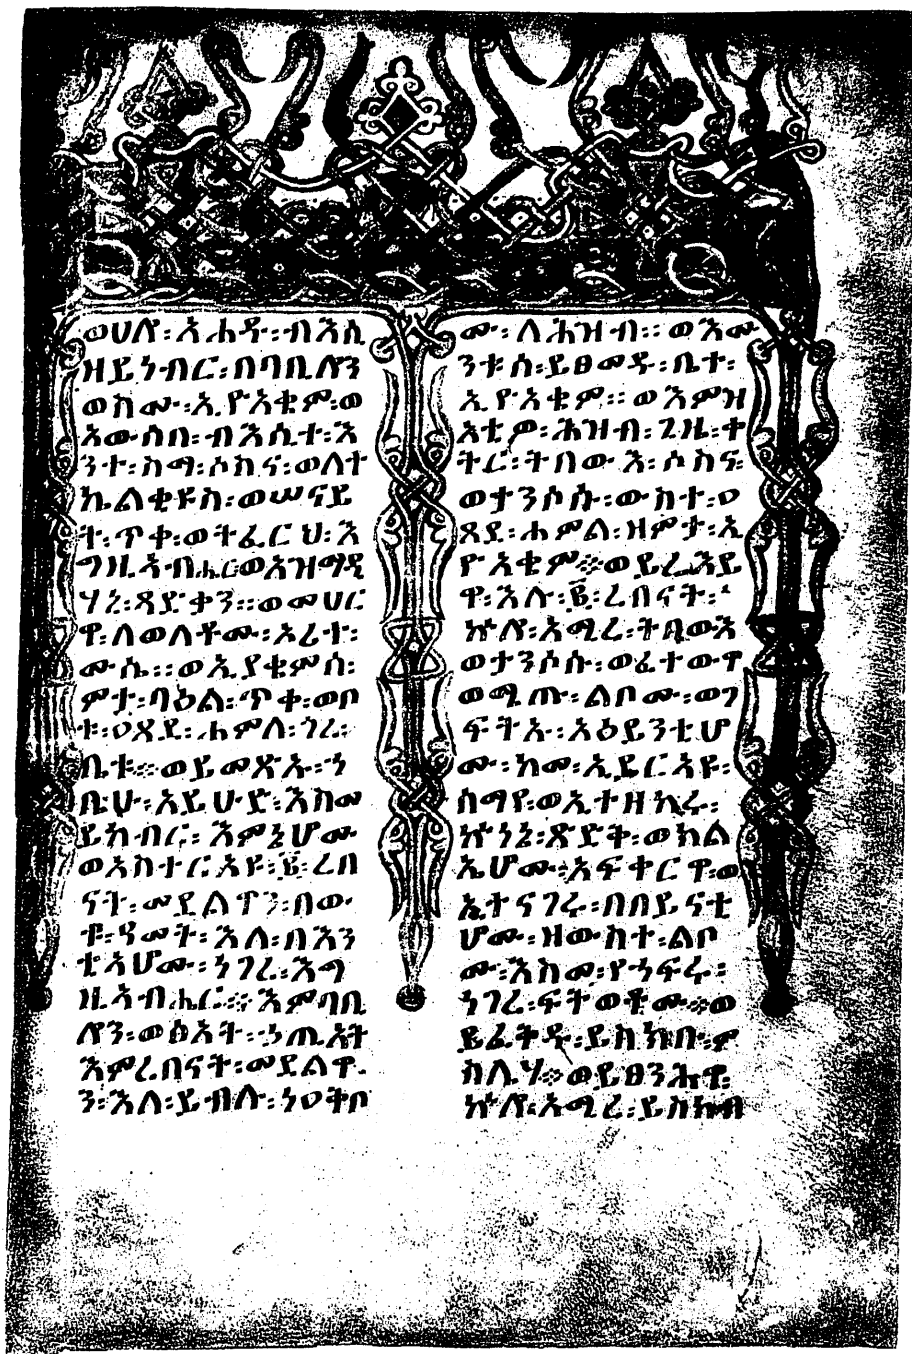 ወሀሎ፡አሐዱ፡ብእሲ
ዘይነብር፡በባቢሎን
ወስሙ፡ኢዮአቄም፡ወ
አውሰበ፡ብእሲተ፡እ
ንተ፡ስማ፡ሶስና፡ወለተ
ኬልቂዩስ፡ወሠናይ
ት፡ጥቀ፡ወትፈርህ፡እ
ግዚአብሔርወአዝማዲ
ሃኒ፡ጻድቃን፡፡ወመሀር
ዋ፡ለወለቶሙ፡ኦሪተ፡
ሙሴ፡፡ወኢያቄምሰ፡
ምታ፡ባዕል፡ጥቀ፡ወቦ
ቱ፡ዐጸደ፡ሐምል፡ጎረ፡
ቤቱ፡፡ወይመጽኡ፡ኀ
ቤሁ፡አይሁድ፡እስመ
ይከብር፡እምኔሆሙ
ወአስተርአዩ፡፪፡ረበ
ናት፡መደልዋን፡በው
ቱ፡ዓመት፡እለ፡በእን
ቲአሆሙ፡ነገረ፡እግ
ዚአብሔር፡፡እምባቢ
ሎን፡ወፅአት፡ኃጢአት
እምረበናት፡መደልዋ
ን፡እለ፡ይብሉ፡ነዐቅቦ
ሙ፡ለሕዝብ፡፡ወእሙ
ንቱሰ፡ይፀመዱ፡ቤተ፡
ኢዮአቄም፡፡ወእምዝ
አቲዎ፡ሕዝብ፡ጊዜ፡ቀ
ትር፡ትበውእ፡ሶስና፡
ወታንሶሱ፡ውስተ፡ዐ
ጸደ፡ሐምል፡ዘምታ፡ኢ
ዮአቄም፡፡ወይሬእይ
ዋ፡እሉ፡፪፡ረበናት፡
ኵሎ፡አሚረ፡ትበውእ
ወታንሶሱ፡ወፈተውዋ
ወሜጡ፡ልቦሙ፡ወገ
ፍትኡ፡አዕይንቲሆ
ሙ፡ከመ፡ኢይርአዩ፡
ሰማየ፡ወኢተዘከሩ፡
ኵነኔ፡ጽድቅ፡ወክል
ኤሆሙ፡አፍቀርዋ፡ወ
ኢተናገሩ፡በበይናቲ
ሆሙ፡ዘውስተ፡ልቦ
ሙ፡እስመ፡የኀፍሩ፡
ነገረ፡ፍትወቶሙ፡፡ወ
ይፈቅዱ፡ይስክቡ፡ም
ስሌሃ፡፡ወይፀንሕዋ፡
ኵሎ፡አሚረ፡ይስክብ